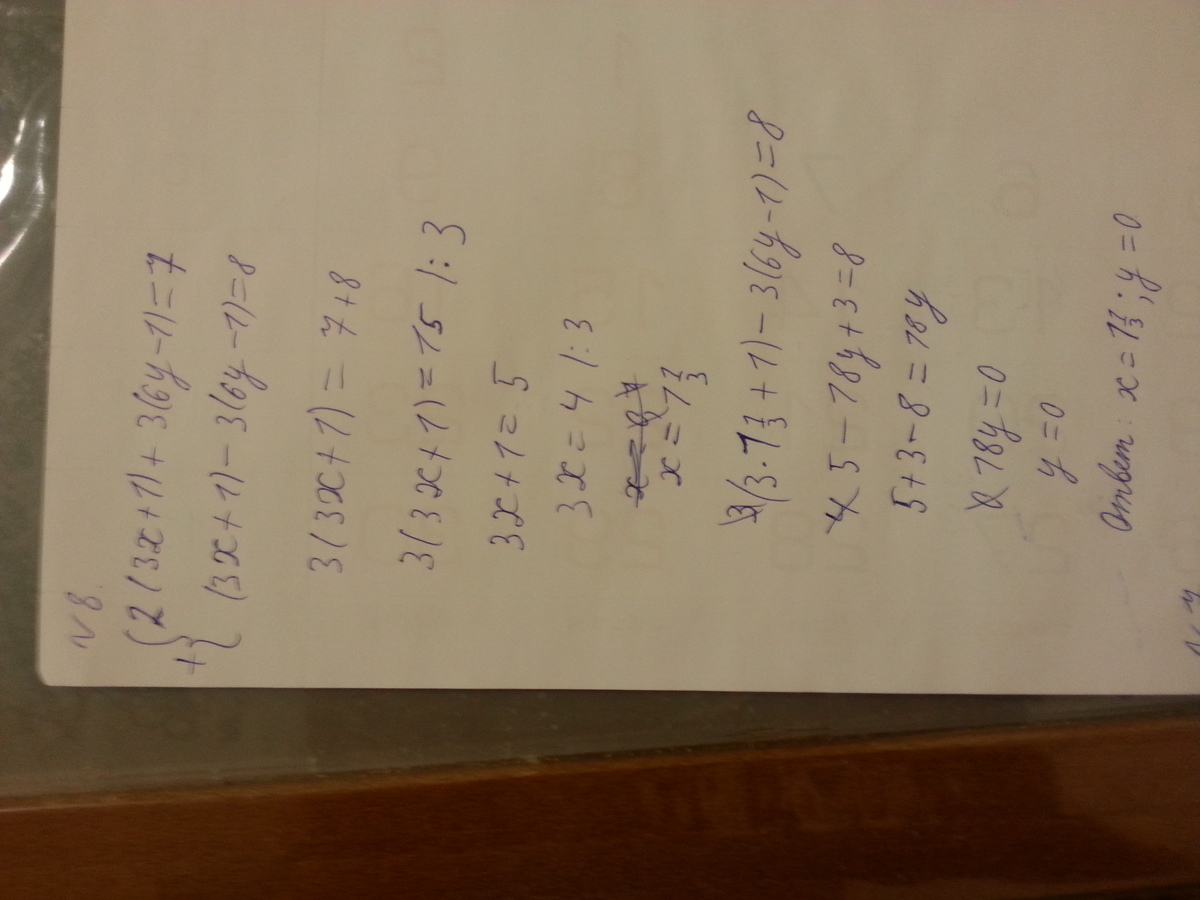 N 8.
{2(3x+1)+3(6y-1)=7
+{(3x+1)-3(6y-1)=8
3(3x+1)=7+8
3(3x+1)=15 /:3
3x+1=5
3x=4 /:3
x=1 1/3
(3·1 1/3+1)-3(6y-1)=8
5-18y+3=8
5+3-8=18y
18y=0
y=0
Ответ: x=1 1/3; y=0